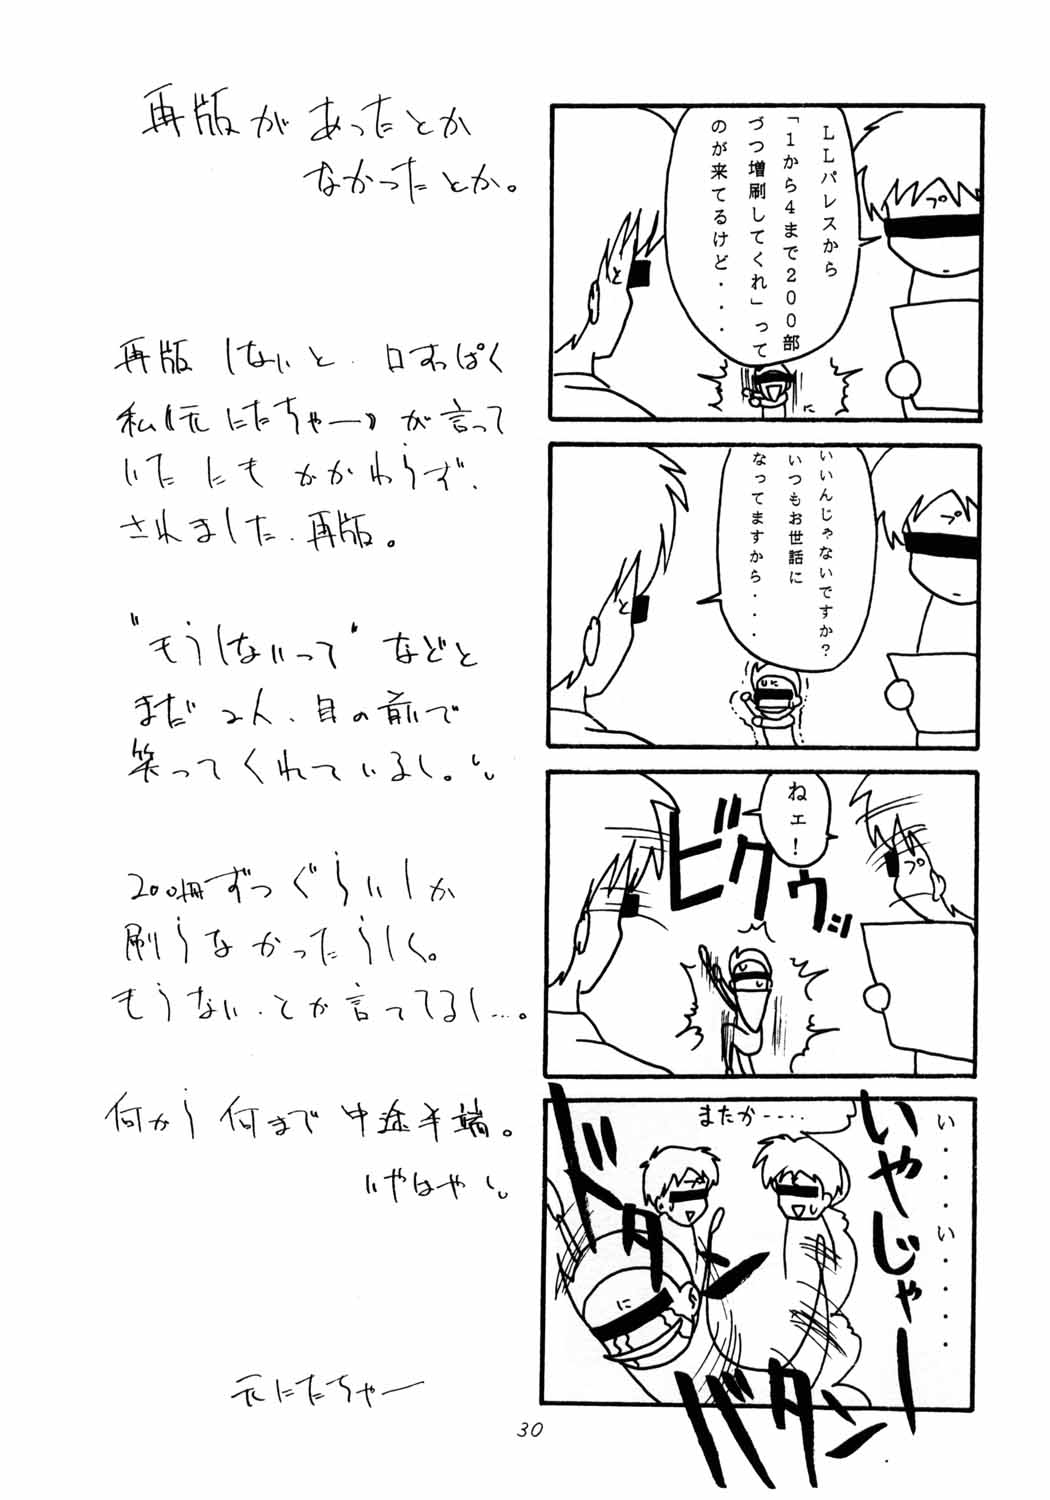 再版があったとか
なかったとか。
再版しないと、口すっぱく
私《元にたちゃー》が言って
いたにもかかわらず、
されました、再版。
“もうしないって”などと
まだ2人、目の前で
笑ってくれているし。
200冊ずつぐらいしか
刷らなかったらしく。
もうない、とか言ってるし…。
何から何まで中途半端。
いやはやし
元にたちゃー
LLパレスから
「1から4まで200部
づつ増刷してくれ」って
のが来てるけど・・・
プ
と
に
いいんじゃないですか?
いつもお世話に
なってますから・・・
プ
と
に
ねェ!
ビクゥッ
プ
い・・・・い・・・・・
いやじゃー
またか・・・・・
ドタン
に
バタン
30